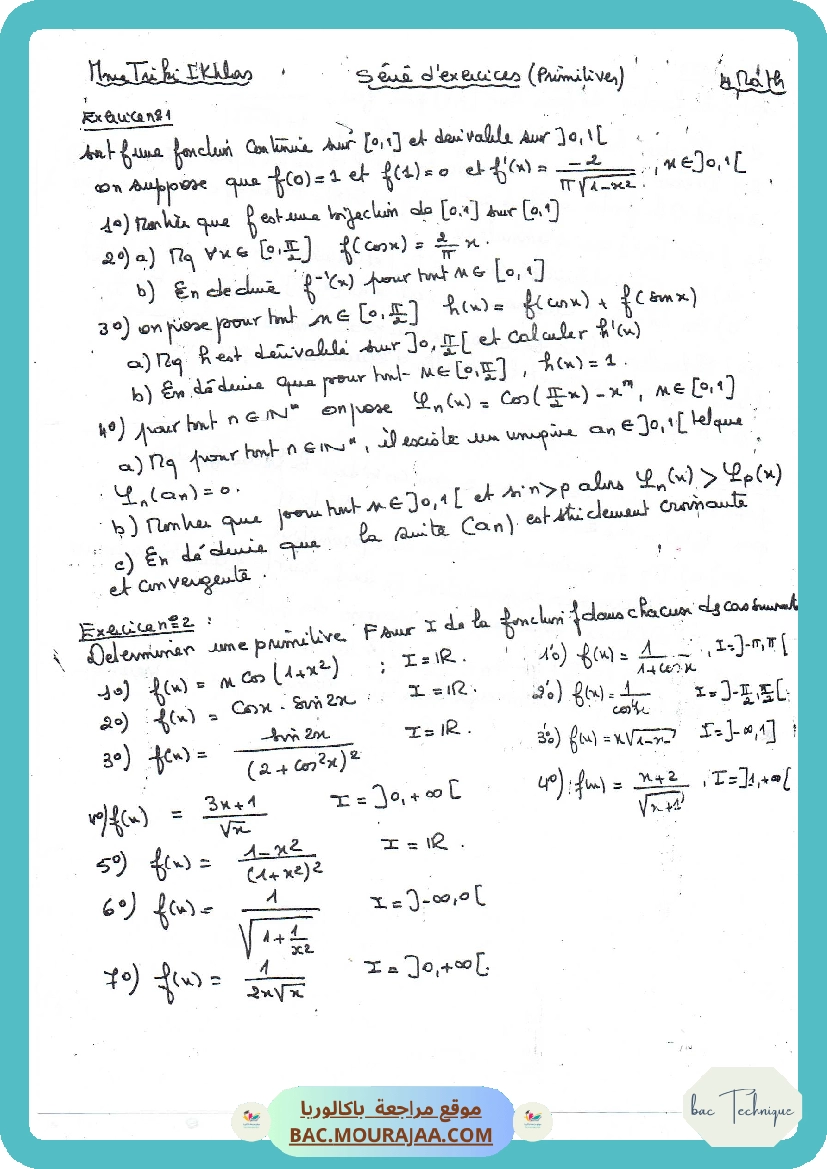 Mme Triki IKhlas Série d'exercices (Primitives) 4 Math
Exercice n° 1
soit f une fonction continue sur [0,1] et derivable sur ]0,1[
on suppose que f(0)=1 et f(1)=0 et f'(x) = -2/(π√(1-x²)), x∈]0,1[
1°) Montrer que f est une bijection de [0,1] sur [0,1]
2°) a) Mq ∀x∈ [0,π/2] f(cosx) = 2/π x.
b) En deduire f⁻¹(x) pour tout x∈ [0,1]
3°) on pose pour tout x∈ [0,π/2] h(x) = f(cosx) + f(sinx)
a) Mq h est dérivable sur ]0,π/2[ et calculer h'(x)
b) En déduire que pour tout x∈[0,π/2], h(x) = 1.
4°) pour tout n∈ℕ* on pose φn(x) = cos(π/2 x) - xⁿ, x∈[0,1]
a) Mq pour tout n∈ℕ*, il existe un unique an∈]0,1[ telque
φn(an)=0.
b) Montrer que pour tout x∈]0,1[ et si n>p alors φn(x) > φp(x)
c) En déduire que la suite (an) est strictement croissante
et convergente.
Exercice n°2 :
Determiner une primitive F sur I de la fonction f dans chacun des cas suivants
1°) f(x) = x cos(1+x²) ; I=IR.
2°) f(x) = cosx . sin2x I=IR.
3°) f(x) = sin2x/(2+cos²x)² I=IR.
4°/ f(x) = (3x+1)/√x I=]0,+∞[
5°) f(x) = (1-x²)/(1+x²)² I=IR.
6°) f(x) = 1/√(1+1/x²) I=]-∞,0[
7°) f(x) = 1/(2x√x) I=]0,+∞[.
1'°) f(x) = 1/(1+cosx), I=]-π,π[
2'°) f(x) = 1/cos⁴x I=]-π/2,π/2[
3'°) f(x) = x√(1-x) I=]-∞,1]
4'°) f(x) = (x+2)/√(x+1), I=]1,+∞[
bac Technique
موقع مراجعة باكالوريا
BAC.MOURAJAA.COM